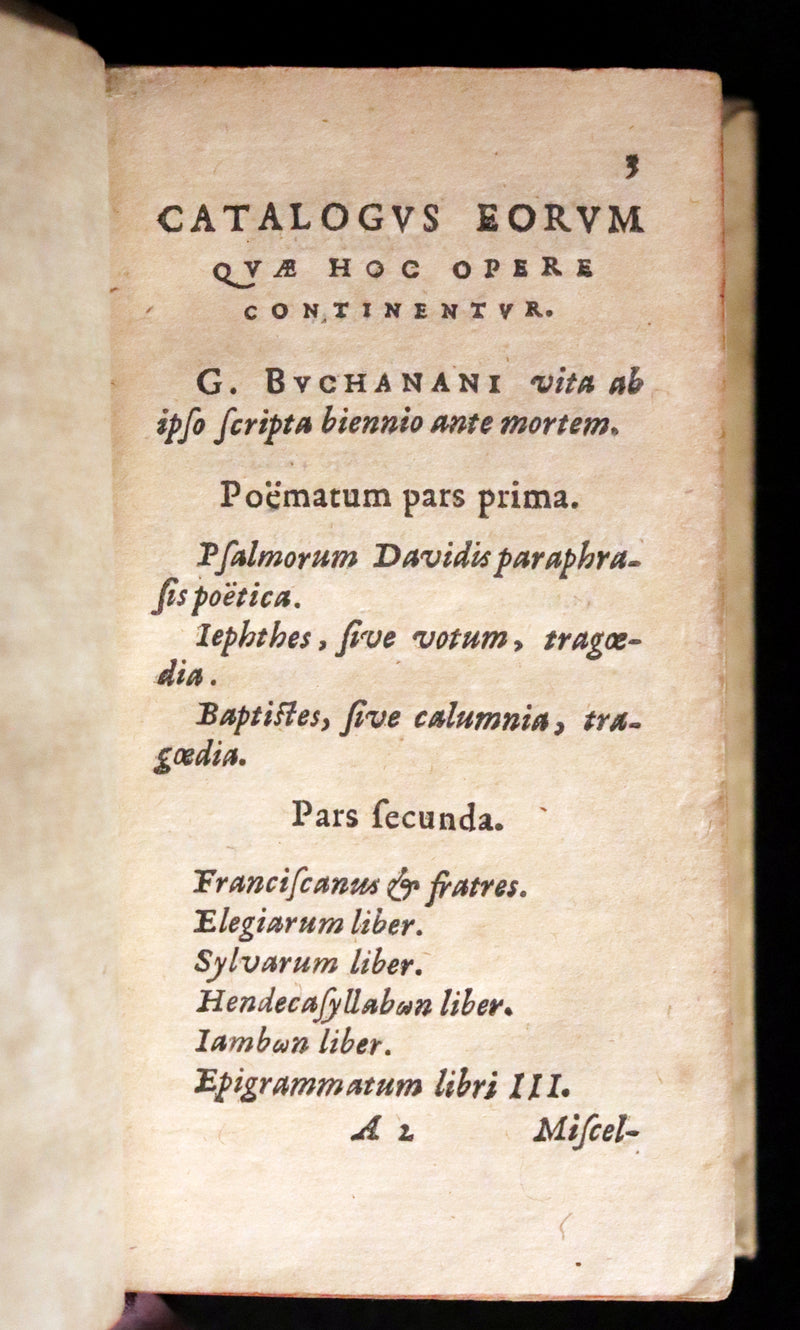 3
CATALOGVS EORVM
QVÆ HOC OPERE
CONTINENTVR.
G. BVCHANANI vita ab
ipſo ſcripta biennio ante mortem.
Poëmatum pars prima.
Pſalmorum Davidis paraphra-
ſis poëtica.
Iephthes, ſive votum, tragœ-
dia.
Baptiſtes, ſive calumnia, tra-
gœdia.
Pars ſecunda.
Franciſcanus & fratres.
Elegiarum liber.
Sylvarum liber.
Hendecaſyllabωn liber.
Iambωn liber.
Epigrammatum libri III.
A 2 Miſcel-